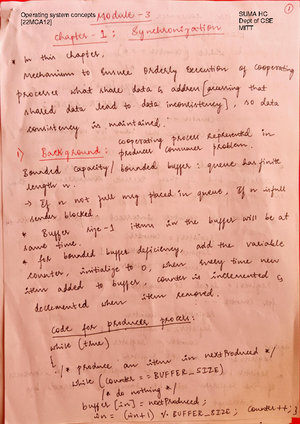 Operating system concepts
[22MCA12]
SUMA HC
Dept of CSE
MITT
1
Module - 3
chapter - 1 : Synchronization
* In this chapter.
Mechanism to ensure orderly execution of cooperating
processes what share data & address [accessing that
shared data lead to data inconsistency], so data
consistency is maintained.
1) Background : cooperating process represented in
producer consumer problem.
Bounded capacity / bounded buffer : queue has finite
length n.
→ If n not full msg placed in queue. If n is full
sender blocked.
* Buffer size-1 items in the buffer will be at
same time.
* for bounded buffer deficiency, add the variable
counter, initialize to 0, when every time new
item added to buffer, counter is incremented &
decremented when item removed.
Code for producer process :
while (true)
{
/* produce an item in nextProduced */
while (counter == BUFFER_SIZE)
/* do nothing */
buffer [in] = nextProduced;
in = (in+1) % BUFFER_SIZE; counter++; }